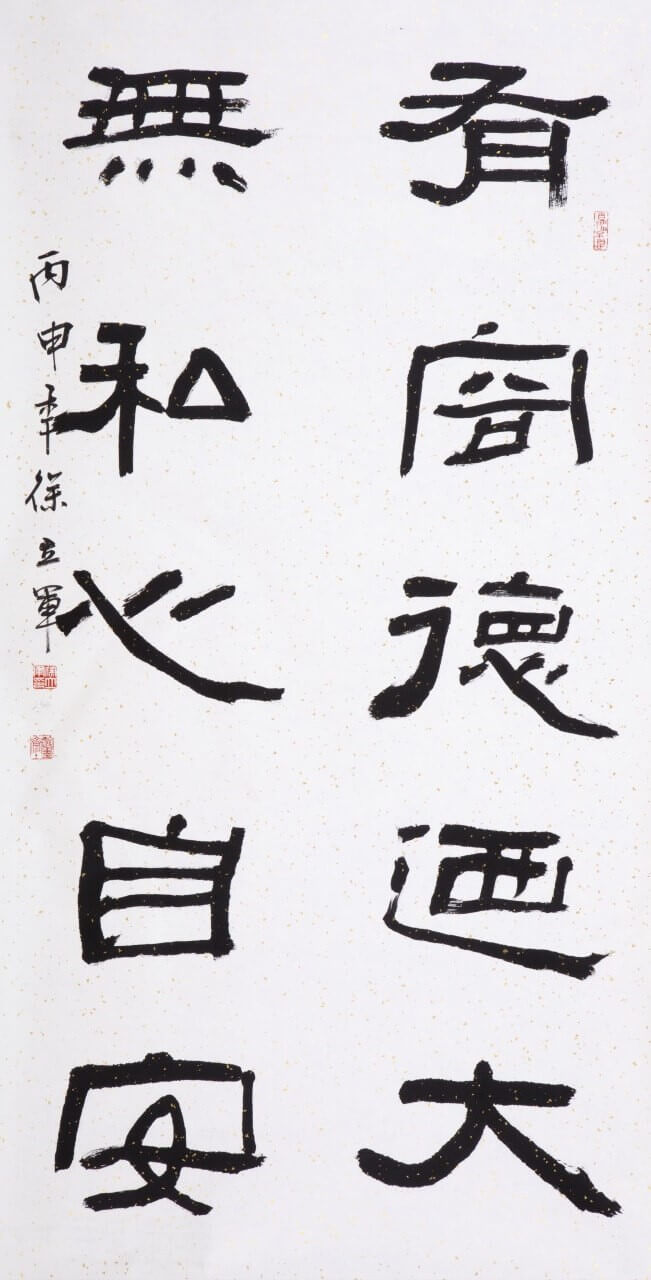 有容德迺大
無私心自安
丙申年徐立軍